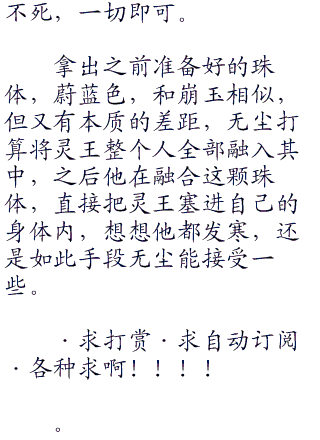 不死，一切即可。
拿出之前准备好的珠
体，蔚蓝色，和崩玉相似，
但又有本质的差距，无尘打
算将灵王整个人全部融入其
中，之后他在融合这颗珠
体，直接把灵王塞进自己的
身体内，想想他都发寒，还
是如此手段无尘能接受一
些。
·求打赏·求自动订阅
·各种求啊！！！！
。